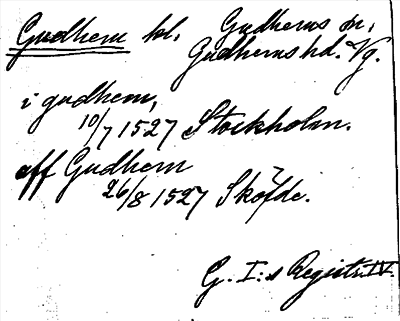 Gudhem kl. Gudhems sn,
Gudhems hd. Vg.
i gudhem,
10/7 1527 Stockholm.
aff Gudhem
26/8 1527 Sköfde.
G. I:s Registr. IV.